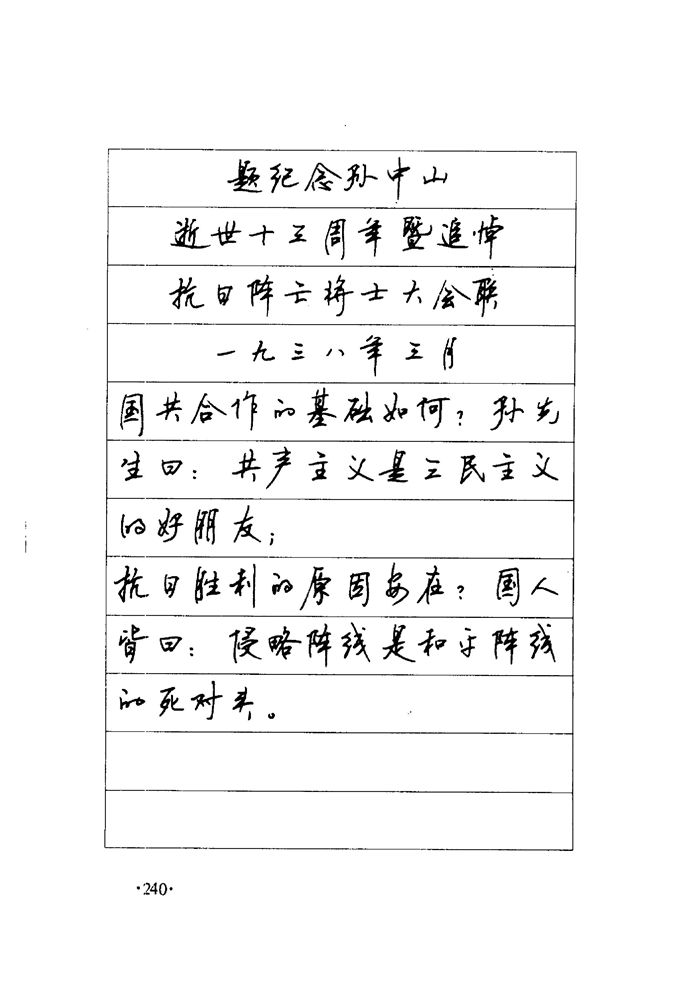 题纪念孙中山
逝世十三周年暨追悼
抗日阵亡将士大会联
一九三八年三月
国共合作的基础如何？孙先
生曰：共产主义是三民主义
的好朋友；
抗日胜利的原因安在？国人
皆曰：侵略阵线是和平阵线
的死对头。
·240·